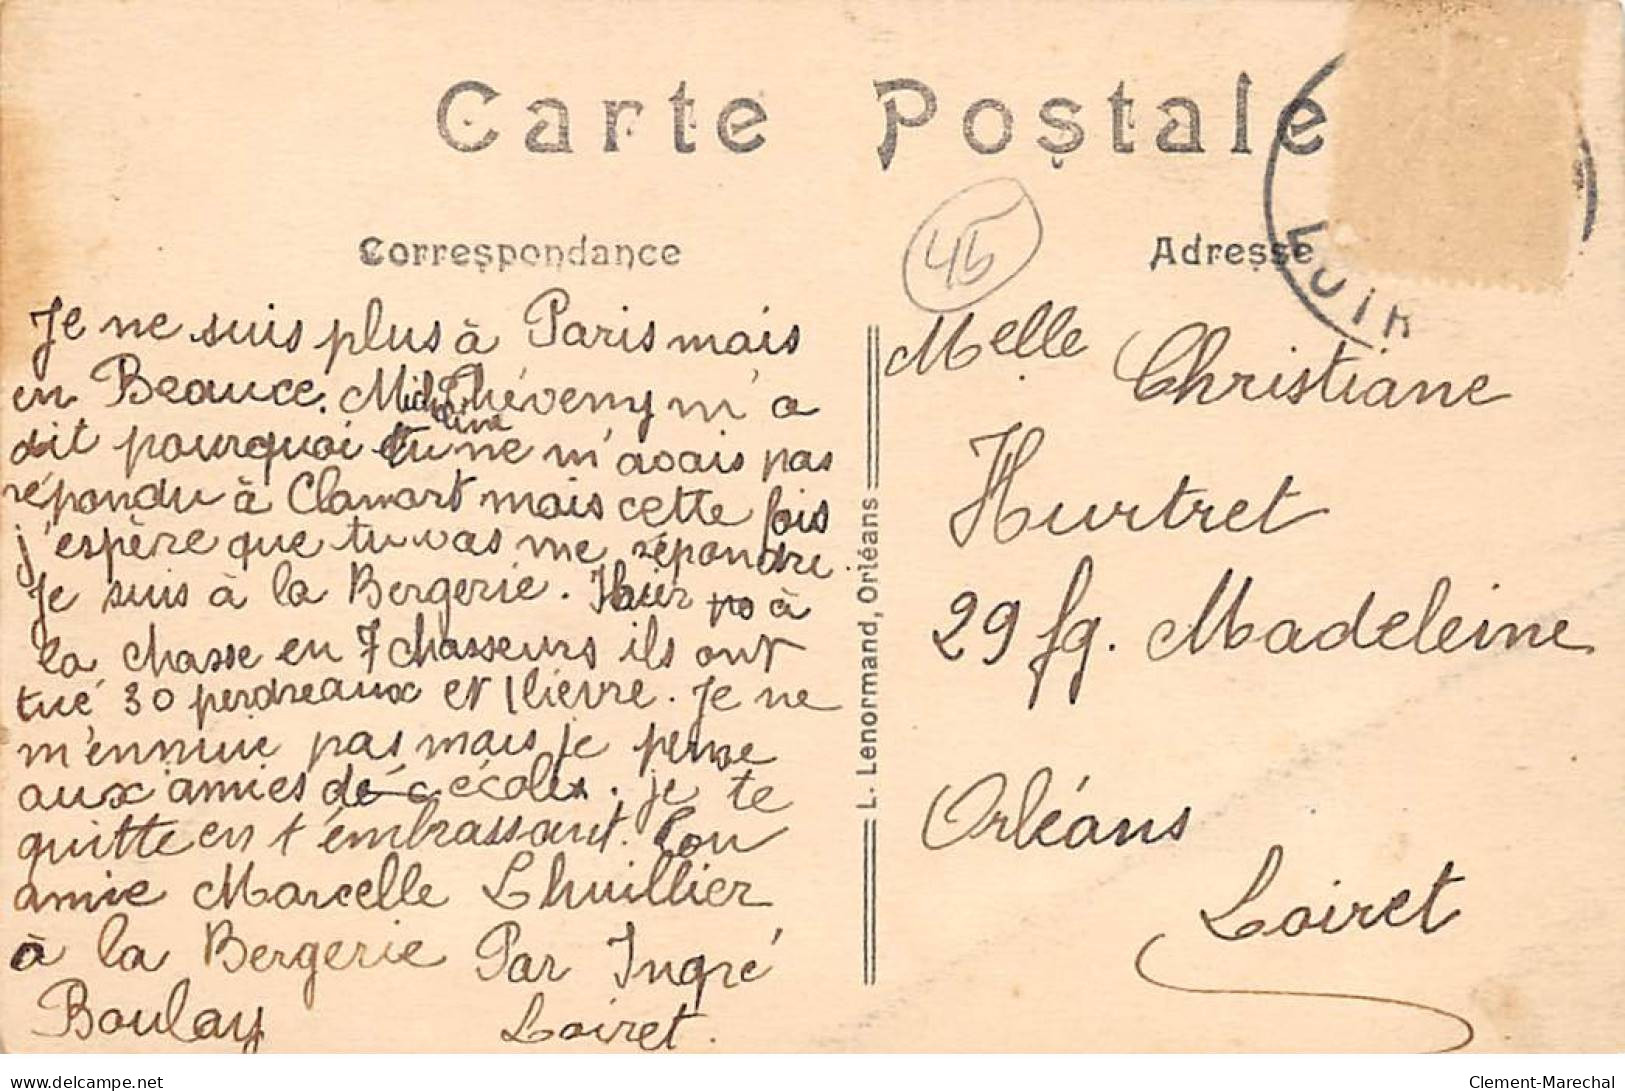 Carte Postale
Correspondance
Adresse
45
LOIR
Je ne suis plus à Paris mais
en Beauce. Micheline Théveny m'a
dit pourquoi tu ne m'avais pas
répondu à Clamart mais cette fois
j'espère que tu vas me répondre.
Je suis à la Bergerie. Hier à
la chasse en 7 chasseurs ils ont
tué 30 perdreaux et 1 lievre. Je ne
m'ennuie pas mais je pense
aux amies de école. je te
quitte en t'embrassant. Ton
amie Marcelle Lhuillier
à la Bergerie Par Ingré
Boulay Loiret.
L. Lenormand, Orléans
Melle Christiane
Hurtret
29 fg. Madeleine
Orléans
Loiret
delcampe.net
Clement-Marechal